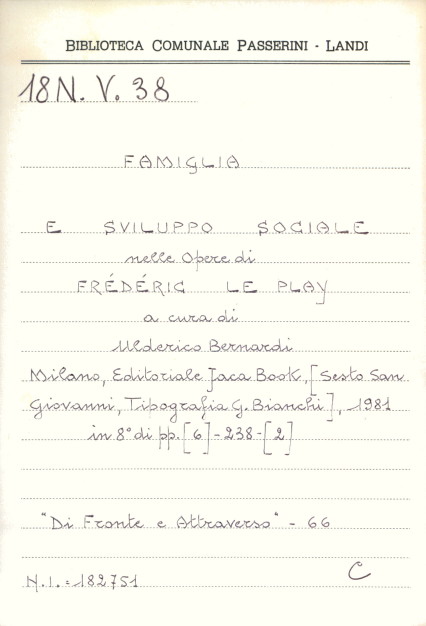 BIBLIOTECA COMUNALE PASSERINI - LANDI
18 N. V. 38
FAMIGLIA
E SVILUPPO SOCIALE
nelle Opere di
FRÉDÉRIC LE PLAY
a cura di
Ulderico Bernardi
Milano, Editoriale Jaca Book, [Sesto San
Giovanni, Tipografia G. Bianchi], 1981
in 8° di pp. [6]-238-[2]
"Di Fronte e Attraverso" - 66
C
N.I. = 182751